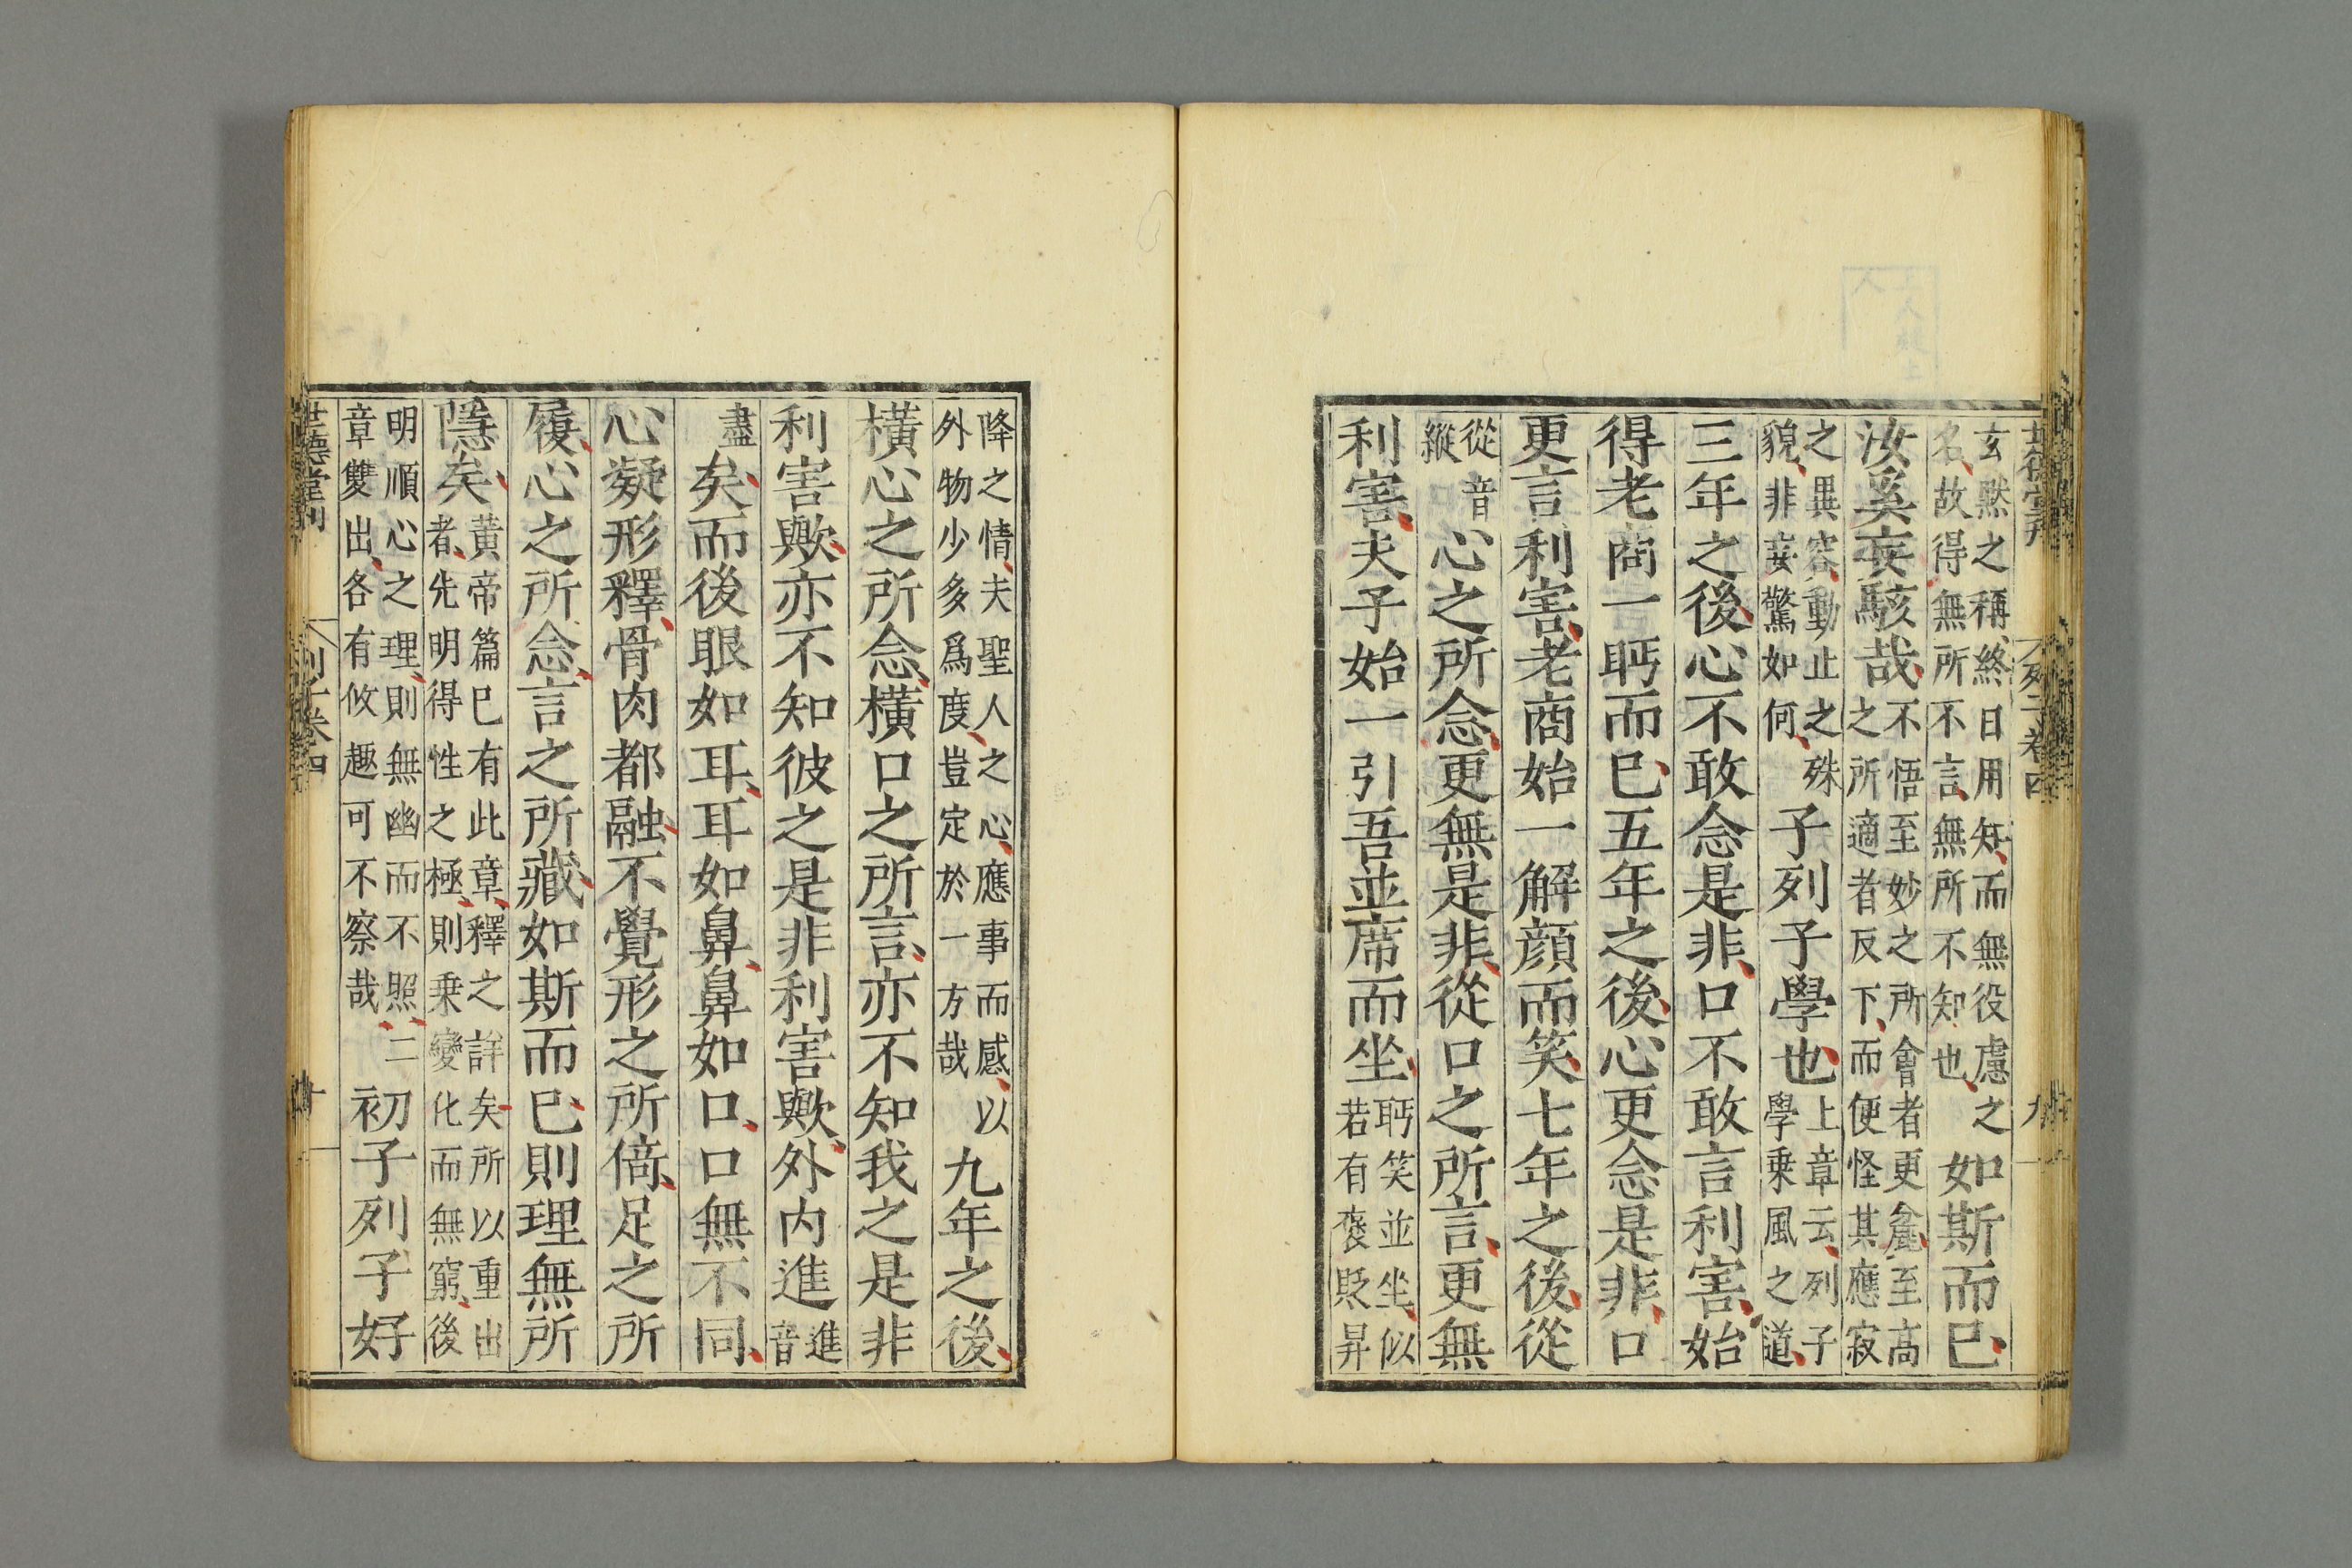 世德堂刊 列子卷四 九
玄默之稱終日用知而無役慮之名故得無所不言無所不知也如斯而已
汝奚妄駭哉不悟至妙之所會者更麄至高之所適者反下而便怪其應寂
之異容動止之殊貌非妄驚如何子列子學也上章云列子學乗風之道
三年之後心不敢念是非口不敢言利害始
得老商一眄而已五年之後心更念是非口
更言利害老商始一解顔而笑七年之後從
從音縱心之所念更無是非從口之所言更無
利害夫子始一引吾並席而坐眄笑並坐似若有襃貶昇
降之情夫聖人之心應事而感以外物少多爲度豈定於一方哉九年之後
橫心之所念橫口之所言亦不知我之是非
利害歟亦不知彼之是非利害歟外内進進音
盡矣而後眼如耳耳如鼻鼻如口口無不同
心凝形釋骨肉都融不覺形之所倚足之所
履心之所念言之所藏如斯而已則理無所
隱矣黃帝篇已有此章釋之詳矣所以重出者先明得性之極則乗變化而無窮後
明順心之理則無幽而不照二章雙出各有攸趣可不察哉初子列子好
世德堂刊 列子卷四 十